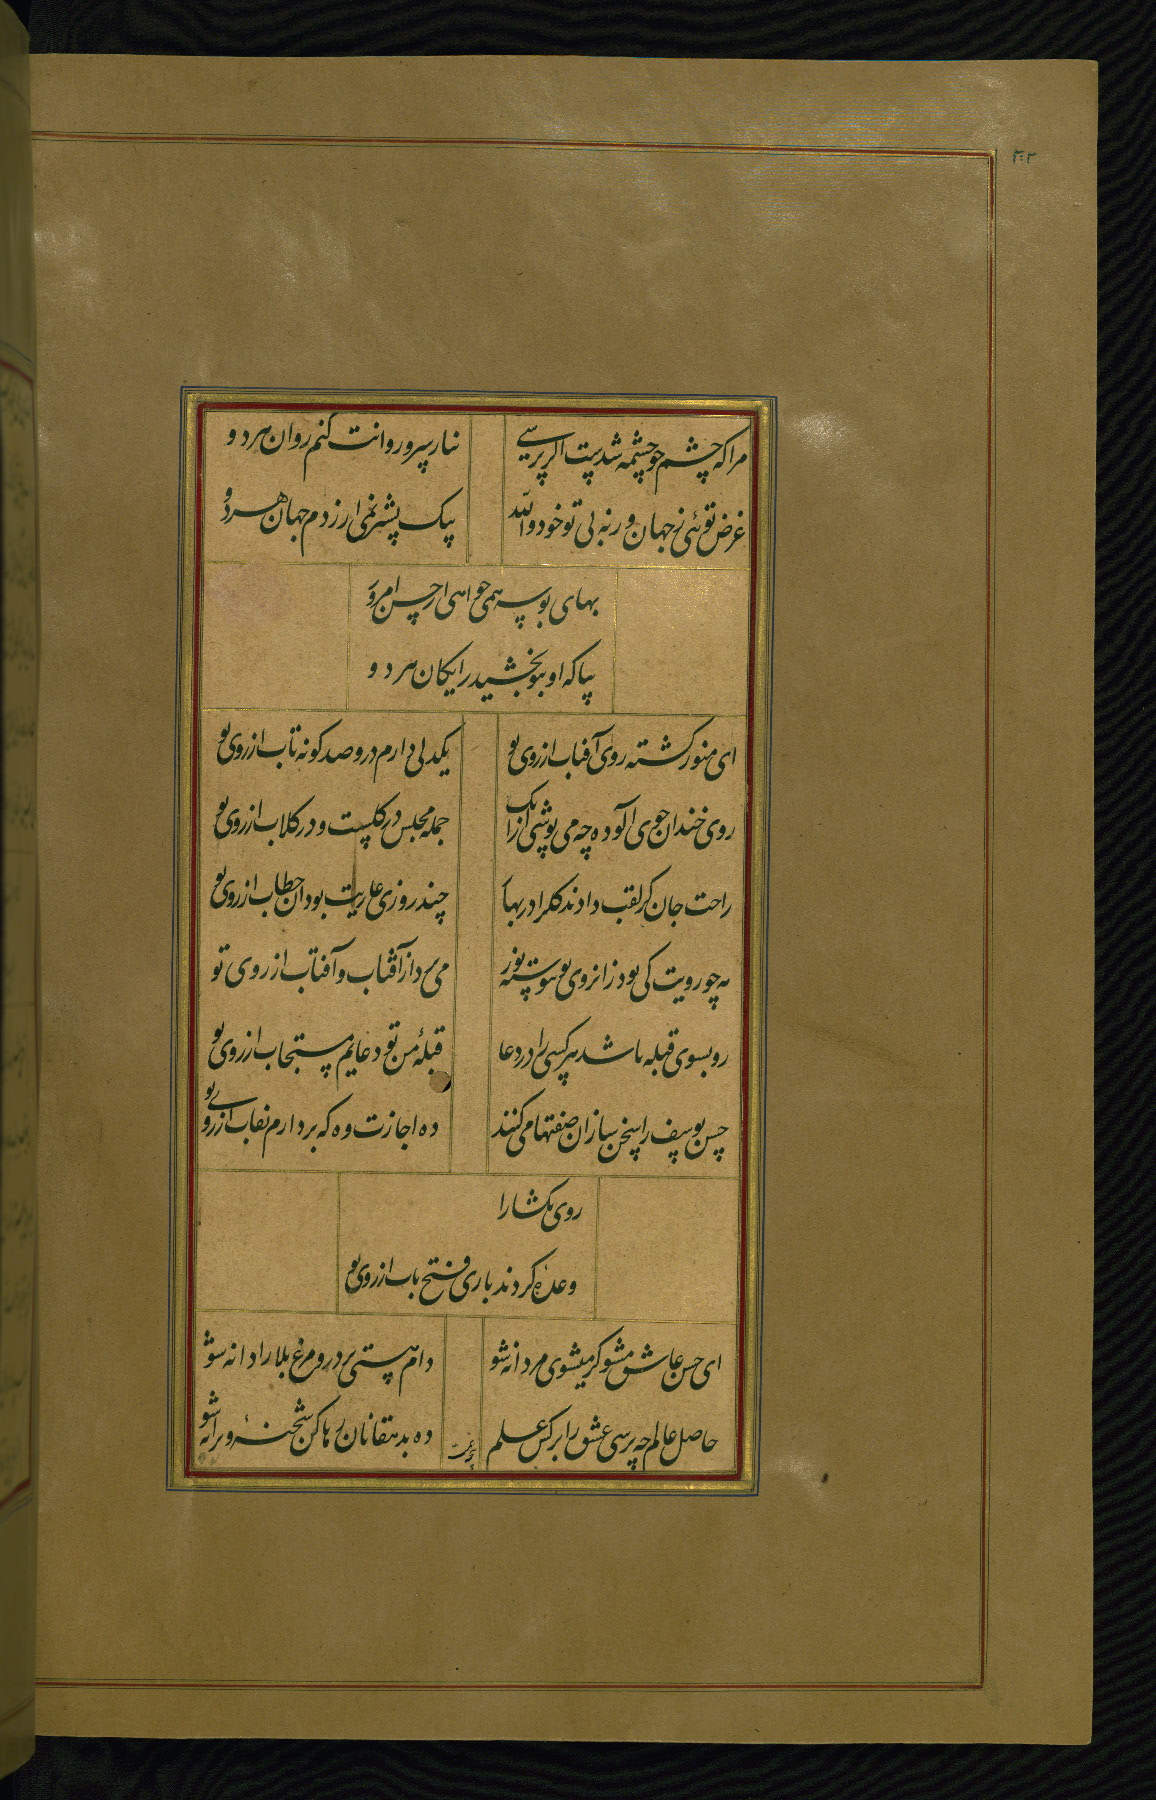 ۳۰۲
مرا که چشم چو چشمه شدست اگر پرسی نثار سرو روانت کنم روان هر دو
غرض توئی ز جهان ورنه بی تو خود والله بیک پشیز نمی ارزدم جهان هر دو
بهای بوسه همی خواهی از حسن امروز
بیا که او بتو بخشید رایکان هر دو
ای منور کشته روی آفتاب از روی تو یکدلی دارم درو صد کونه تاب از روی تو
روی خندان خوی آلوده چه می پوشی ازانک جمله مجلس در کلست و در کلاب از روی تو
راحت جان کر لقب دادند کلرا در بهار چند روزی عاریت بود ان خطاب از روی تو
مه چو رویت کی بود زانروی تو پیوسته نور می برد از آفتاب و آفتاب از روی تو
رو بسوی قبله باشد هر کسی را در دعا قبلهٔ من تو دعایم مستجاب از روی تو
حسن یوسف را سخن سازان صفتها می کنند ده اجازت وه که بردارم نقاب از روی تو
روی بکشا را
وعده کردند باری فتح باب از روی تو
ای حسن عاشق مشو کر میشوی مردانه شو دام هستی بر در و مرغ بلا را دانه شو
حاصل عالم چه پرسی عشق را برکش علم ده بدهقانان رها کن شحنهٔ ویرانه شو